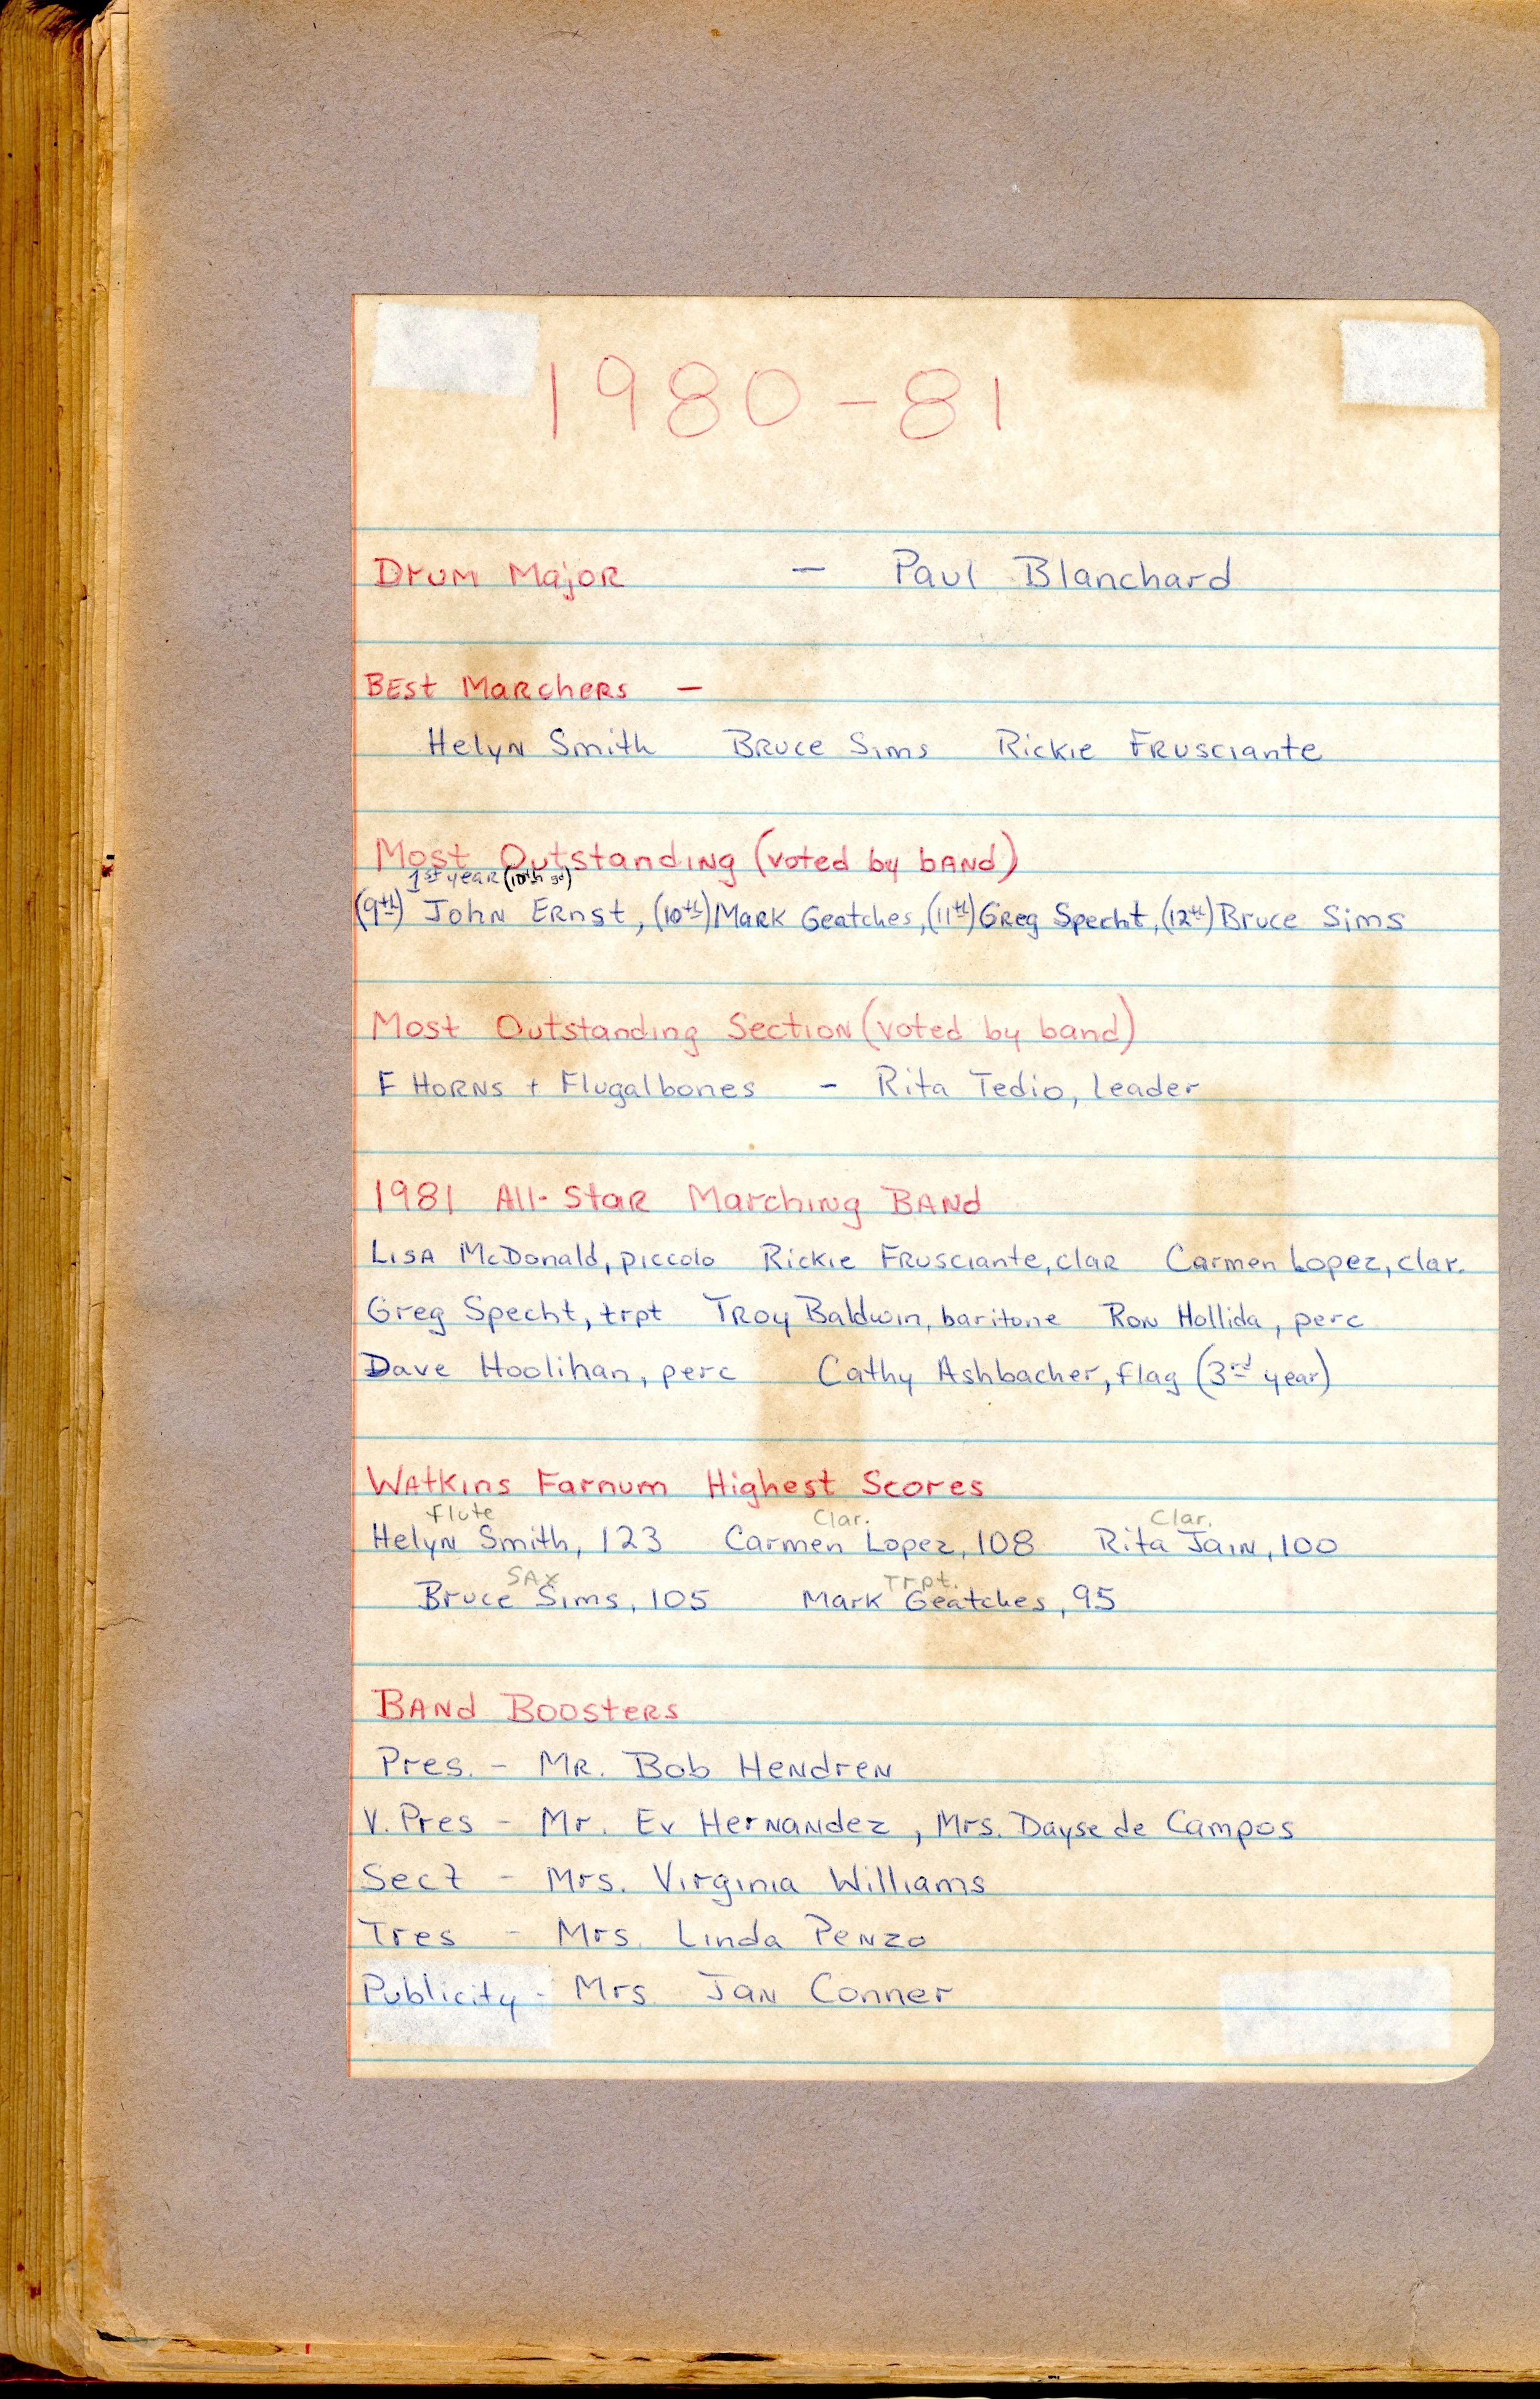 1980-81
Drum Major - Paul Blanchard
Best Marchers -
Helyn Smith Bruce Sims Rickie Frusciante
Most Outstanding (voted by band)
1st year (10th gd)
(9th) John Ernst, (10th) Mark Geatches, (11th) Greg Specht, (12th) Bruce Sims
Most Outstanding Section (voted by band)
F Horns + Flugalbones - Rita Tedio, leader
1981 All-Star Marching Band
Lisa McDonald, piccolo Rickie Frusciante, clar Carmen Lopez, clar.
Greg Specht, trpt Troy Baldwin, baritone Ron Hollida, perc
Dave Hoolihan, perc Cathy Ashbacher, flag (3rd year)
Watkins Farnum Highest Scores
flute Clar. Clar.
Helyn Smith, 123 Carmen Lopez, 108 Rita Jain, 100
SAX Trpt.
Bruce Sims, 105 Mark Geatches, 95
Band Boosters
Pres. - Mr. Bob Hendren
V. Pres - Mr. Ev Hernandez, Mrs. Dayse de Campos
Sect - Mrs. Virginia Williams
Tres - Mrs. Linda Penzo
Publicity - Mrs. Jan Conner